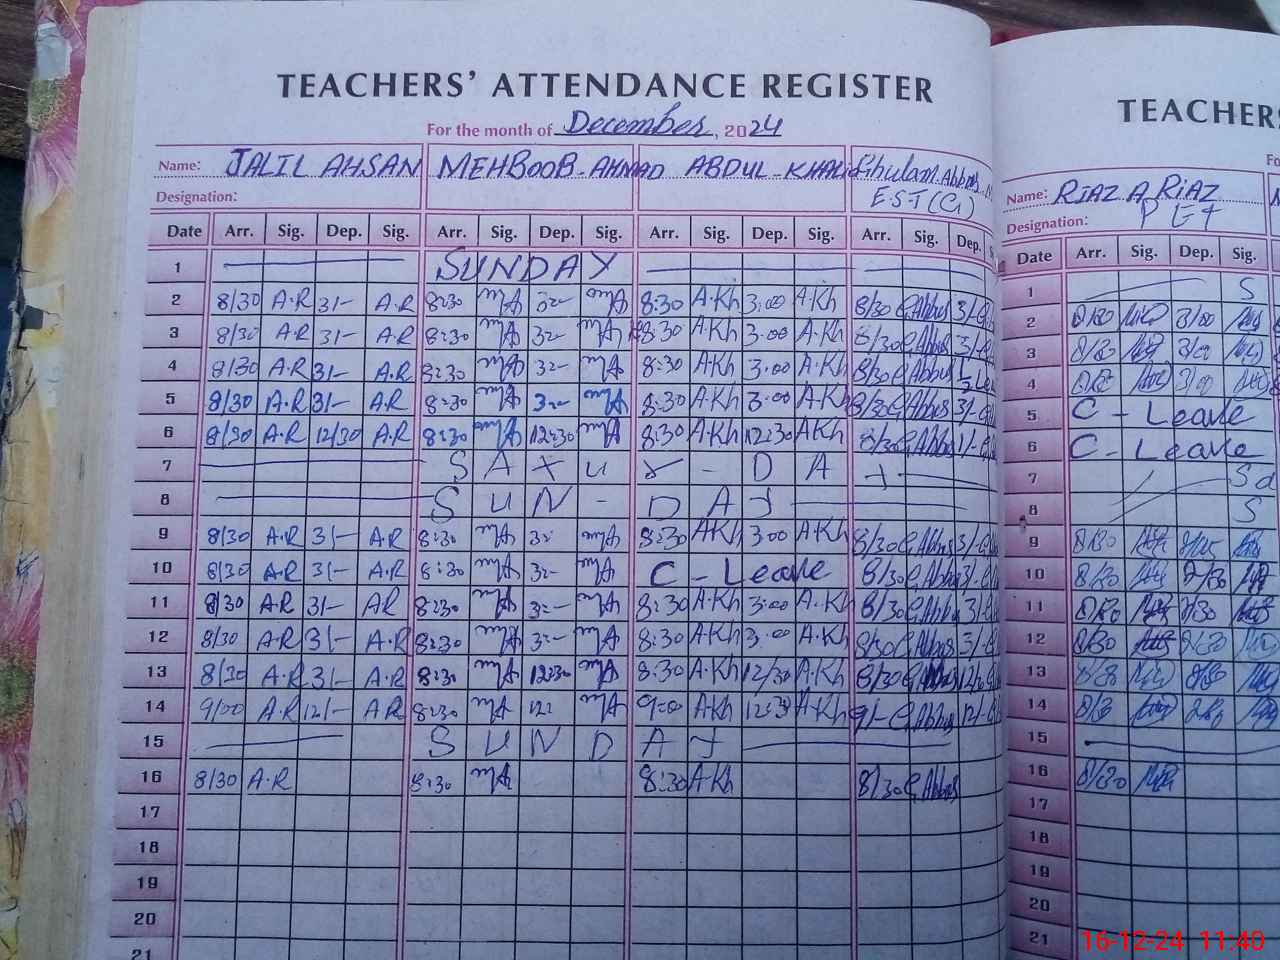 TEACHERS' ATTENDANCE REGISTER
For the month of December, 2024
Name: JALIL AHSAN MEHBOOB-AHMAD ABDUL-KHALI Ghulam Abbas
Designation: E.S.T(G)
Date Arr. Sig. Dep. Sig. Arr. Sig. Dep. Sig. Arr. Sig. Dep. Sig. Arr. Sig. Dep. S
1 SUNDAY
2 8/30 A.R 31- A.R 8:30 mA 3:- mA 8:30 A.Kh 3:00 A.Kh 8/30 G.Abbas 3/-
3 8/30 A.R 31- A.R 8:30 mA 3:- mA 8:30 A.Kh 3.00 A.Kh 8/30 G.Abbas 3/-
4 8/30 A.R 31- A.R 8:30 mA 3:- mA 8:30 A.Kh 3.00 A.Kh 8/30 G.Abbas
5 8/30 A.R 31- A.R 8:30 mA 3:- mA 8:30 A.Kh 3.00 A.Kh 8/30 G.Abbas 3/-
6 8/30 A.R 12/30 A.R 8:30 mA 12:30 mA 8:30 A.Kh 12:30 AKh 8/30 G.Abbas 1/-
7 SATUR-DAY
8 SUN-DAY
9 8/30 A.R 31- A.R 8:30 mA 3: mA 8:30 A.Kh 3:00 A.Kh 8/30 G.Abbas 3/-
10 8/30 A.R 31- A.R 8:30 mA 3:- mA C-Leave 8/30 G.Abbas 3/-
11 8/30 A.R 31- AR 8:30 mA 3:- mA 8:30 A.Kh 3:00 A.Kh 8/30 G.Abbas 3/-
12 8/30 A.R 31- A.R 8:30 mA 3:- mA 8:30 A.Kh 3:00 A.Kh 8/30 G.Abbas 3/-
13 8/30 A.R 31- A.R 8:30 mA 12:30 mA 8:30 A.Kh 12/30 A.Kh 8/30 G.Abbas
14 9/00 A.R 121- A.R 8:30 mA 12: mA 9:00 A.Kh 12:30 A.Kh 9/- G.Abbas 12/-
15 SUNDAY
16 8/30 A.R 8:30 mA 8:30 A.Kh 8/30 G.Abbas
17
18
19
20
21
TEACHERS
Name: RIAZ A RIAZ
Designation: PET
Date Arr. Sig. Dep. Sig.
1 S
2 8/30 3/00
3 8/30 3/00
4 3/00
5 C-Leave
6 C-Leave
7 Sa
8 S
9 8/30
10 8/30
11
12 8/30
13
14
15
16 8/30
17
18
19
20
21
16-12-24 11:40